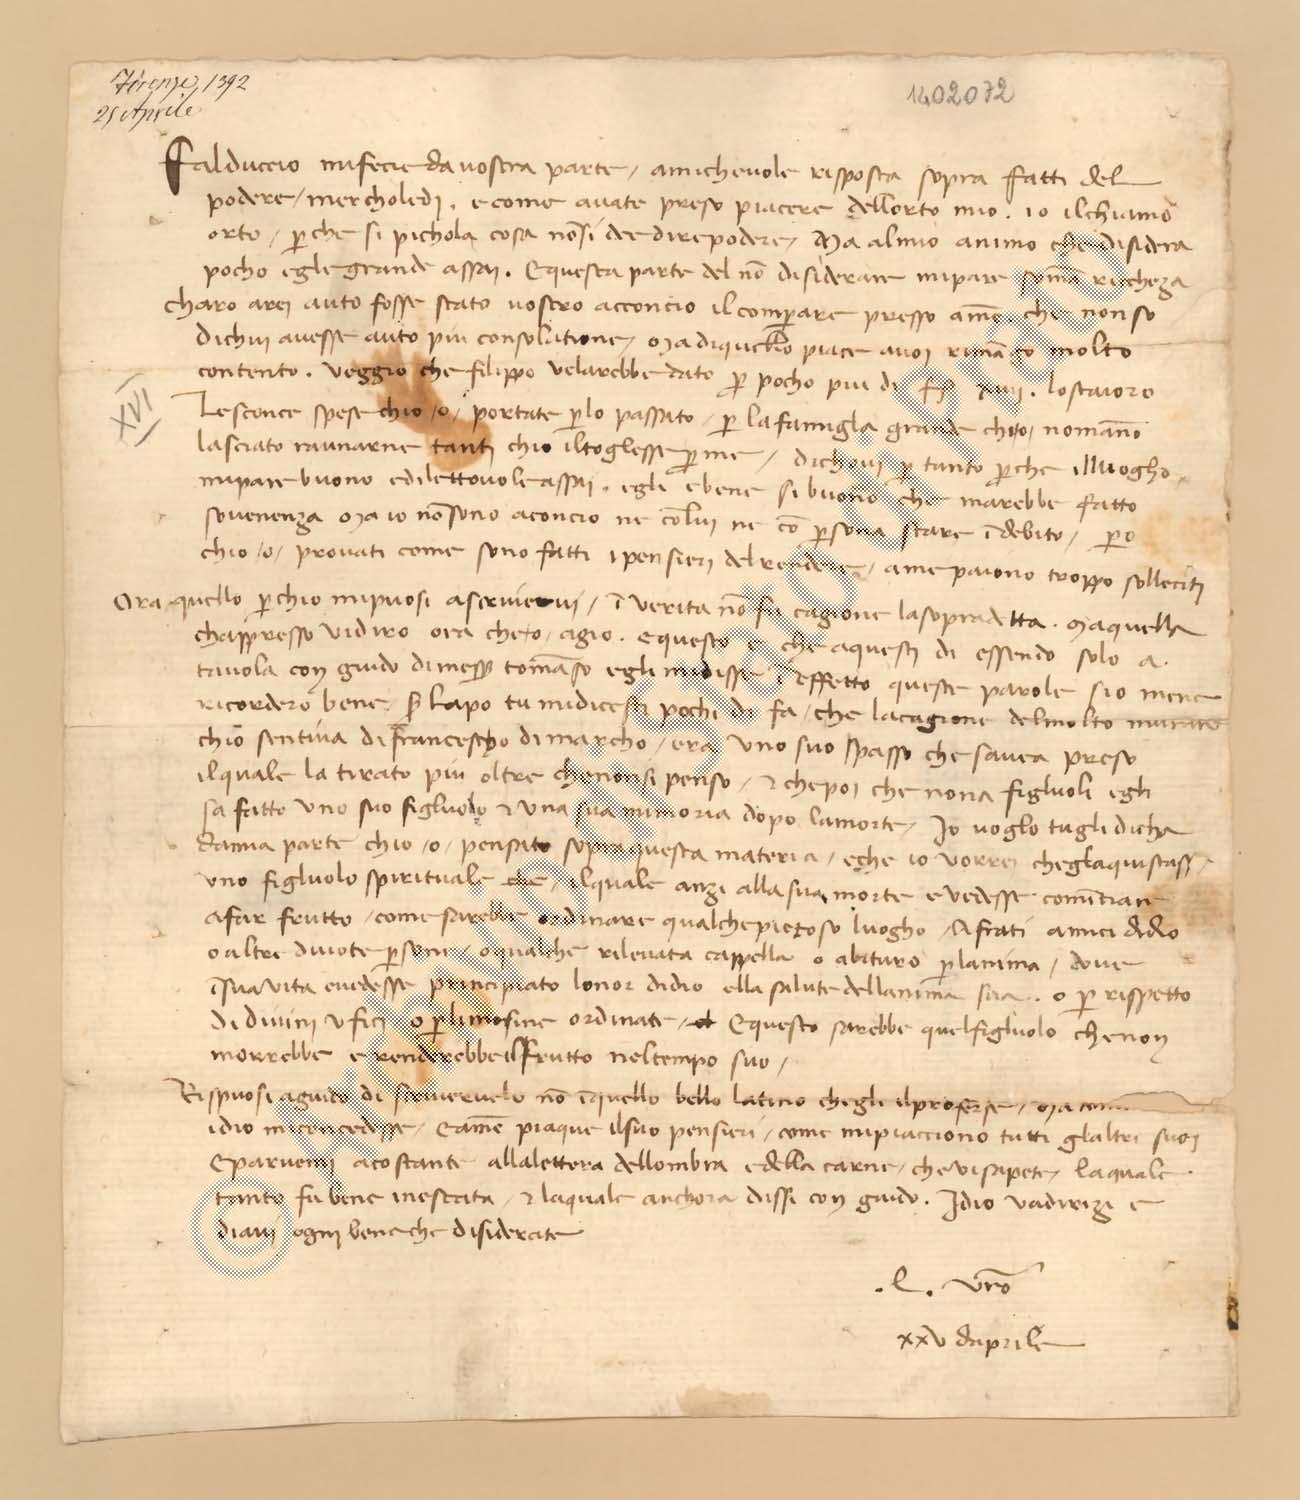 Firenze, 1392
25 Aprile
1402072
XVI
Falduccio mi fecie da vostra parte / amichevole risposta sopra fatti del
podere / mercholedi . e come avate preso piacere dell orto mio . io il chiamo
orto / p che si pichola cosa no si dee dire podere / Ma al mio animo che disidera
pocho egle grande assai . E questa parte del no disiderare mi pare soma riccheza
charo arei auto fosse stato vostro acconcio il comperare presso a me che non so
di chui avesse auto piu consolatione / Ma di quello piace a voi rimango molto
contento . Veggio che filippo ve larebbe dato p pocho piu di xviii . lo staioro
Le sconce spese chio /o/ portate p lo passato / p la famigla grande chio / no m ano
lasciato ravnarne tanti chio il toglesse p me / dichovi p tanto p che il luogho
mi pare buono e dilettevole assai . egli e bene si buono che m arebbe fatto
sovenenza Ma io no sono aconcio ne co lui ne co p sona stare i debito / p o
chio /o/ provati come sono fatti i pensieri del rendere / a me paiono troppo solleciti
Ora quello p chio mi puosi a scrivervi / i verita no fu cagione la sopradetta . Ma quella
ch appresso vi diro ora che /o/ agio . E questo e che a questi di essendo solo a
tavola con guido di mess tomaso egli mi disse i effetto queste parole s io me ne
ricordero bene / S Lapo tu mi dicesti pochi di fa / che la cagione del molto murare
chio sentiva di francescho di marcho / era uno suo spasso che s avea preso
il quale l a tirato piu oltre che non si penso / & che poi che non a figluoli egli
s a fatto uno suo figluolo & una sua mimoria dopo la morte / Io voglo tu gli dicha
da mia parte chio /o/ pensato sopra questa materia / e che io vorrei che gl aquistasse
uno figluolo spirituale / il quale anzi alla sua morte e vedesse cominciare
a far frutto / come sarebbe ordinare qualche pietoso luogho / A frati amici di dio
o altre divote p sone / o qualche rilevata cappella o abituro p l anima / dove
i sua vita e vedesse principiato l onor di dio e lla salute dell anima sua . o p rispetto
di divini ufici o p limosine ordinate / E questo sarebbe quel figluolo che non
morrebbe e renderebbe il frutto nel tempo suo /
Rispuosi a guido di scrivervelo no i quello bello latino ch egli il proferse / Ma come
idio mi concedesse / E a me piaque il suo pensieri / come mi piacciono tutti gl altri suoi
E parvemi acostante alla lettera dell ombra e della carne / che vi sapete / la quale
tanto fu bene inestata / & la quale anchora dissi con guido . Idio vadirizi e
diavi ogni bene che disiderate
. L . vro
xxv daprile